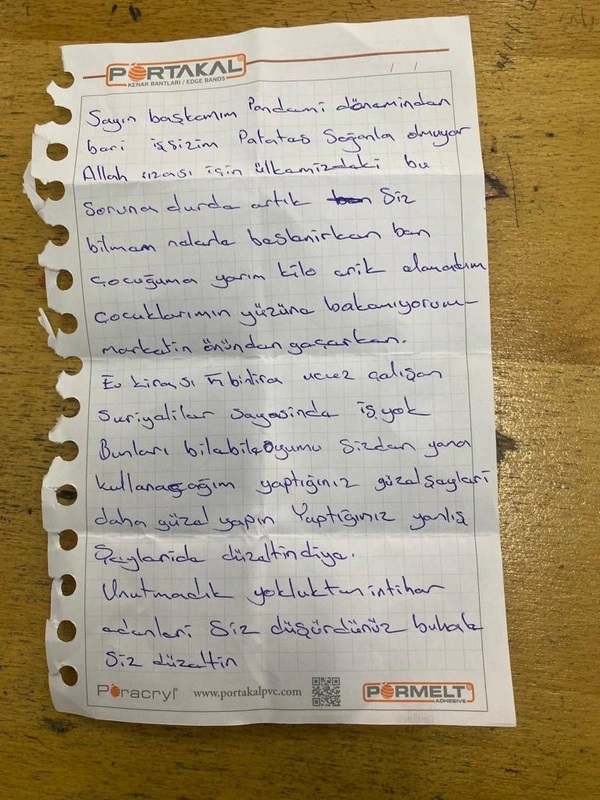 PORTAKAL
KENAR BANTLARI / EDGE BANDS
/ /
Sayın başkanım Pandemi döneminden
beri işsizim Patates Soğanla olmuyor
Allah rızası için ülkemizdeki bu
soruna durda artık Siz
bilmem nelerle beslenirken ben
çocuğuma yarım kilo erik alamadım
çocuklarımın yüzüne bakamıyorum
marketin önünden geçerken.
Ev kirası binlira ucuz çalışan
suriyeliler sayesinde iş yok
Bunları bilebileoyumu Sizden yana
kullanacağım yaptığınız güzel şeyleri
daha güzel yapın Yaptığınız yanlış
Şeyleride düzeltindiye.
Unutmadık yokluktan intihar
edenleri Siz düşürdünüz buhale
Siz düzeltin
Poracryl
www.portakalpvc.com
PORMELT
ADHESIVE